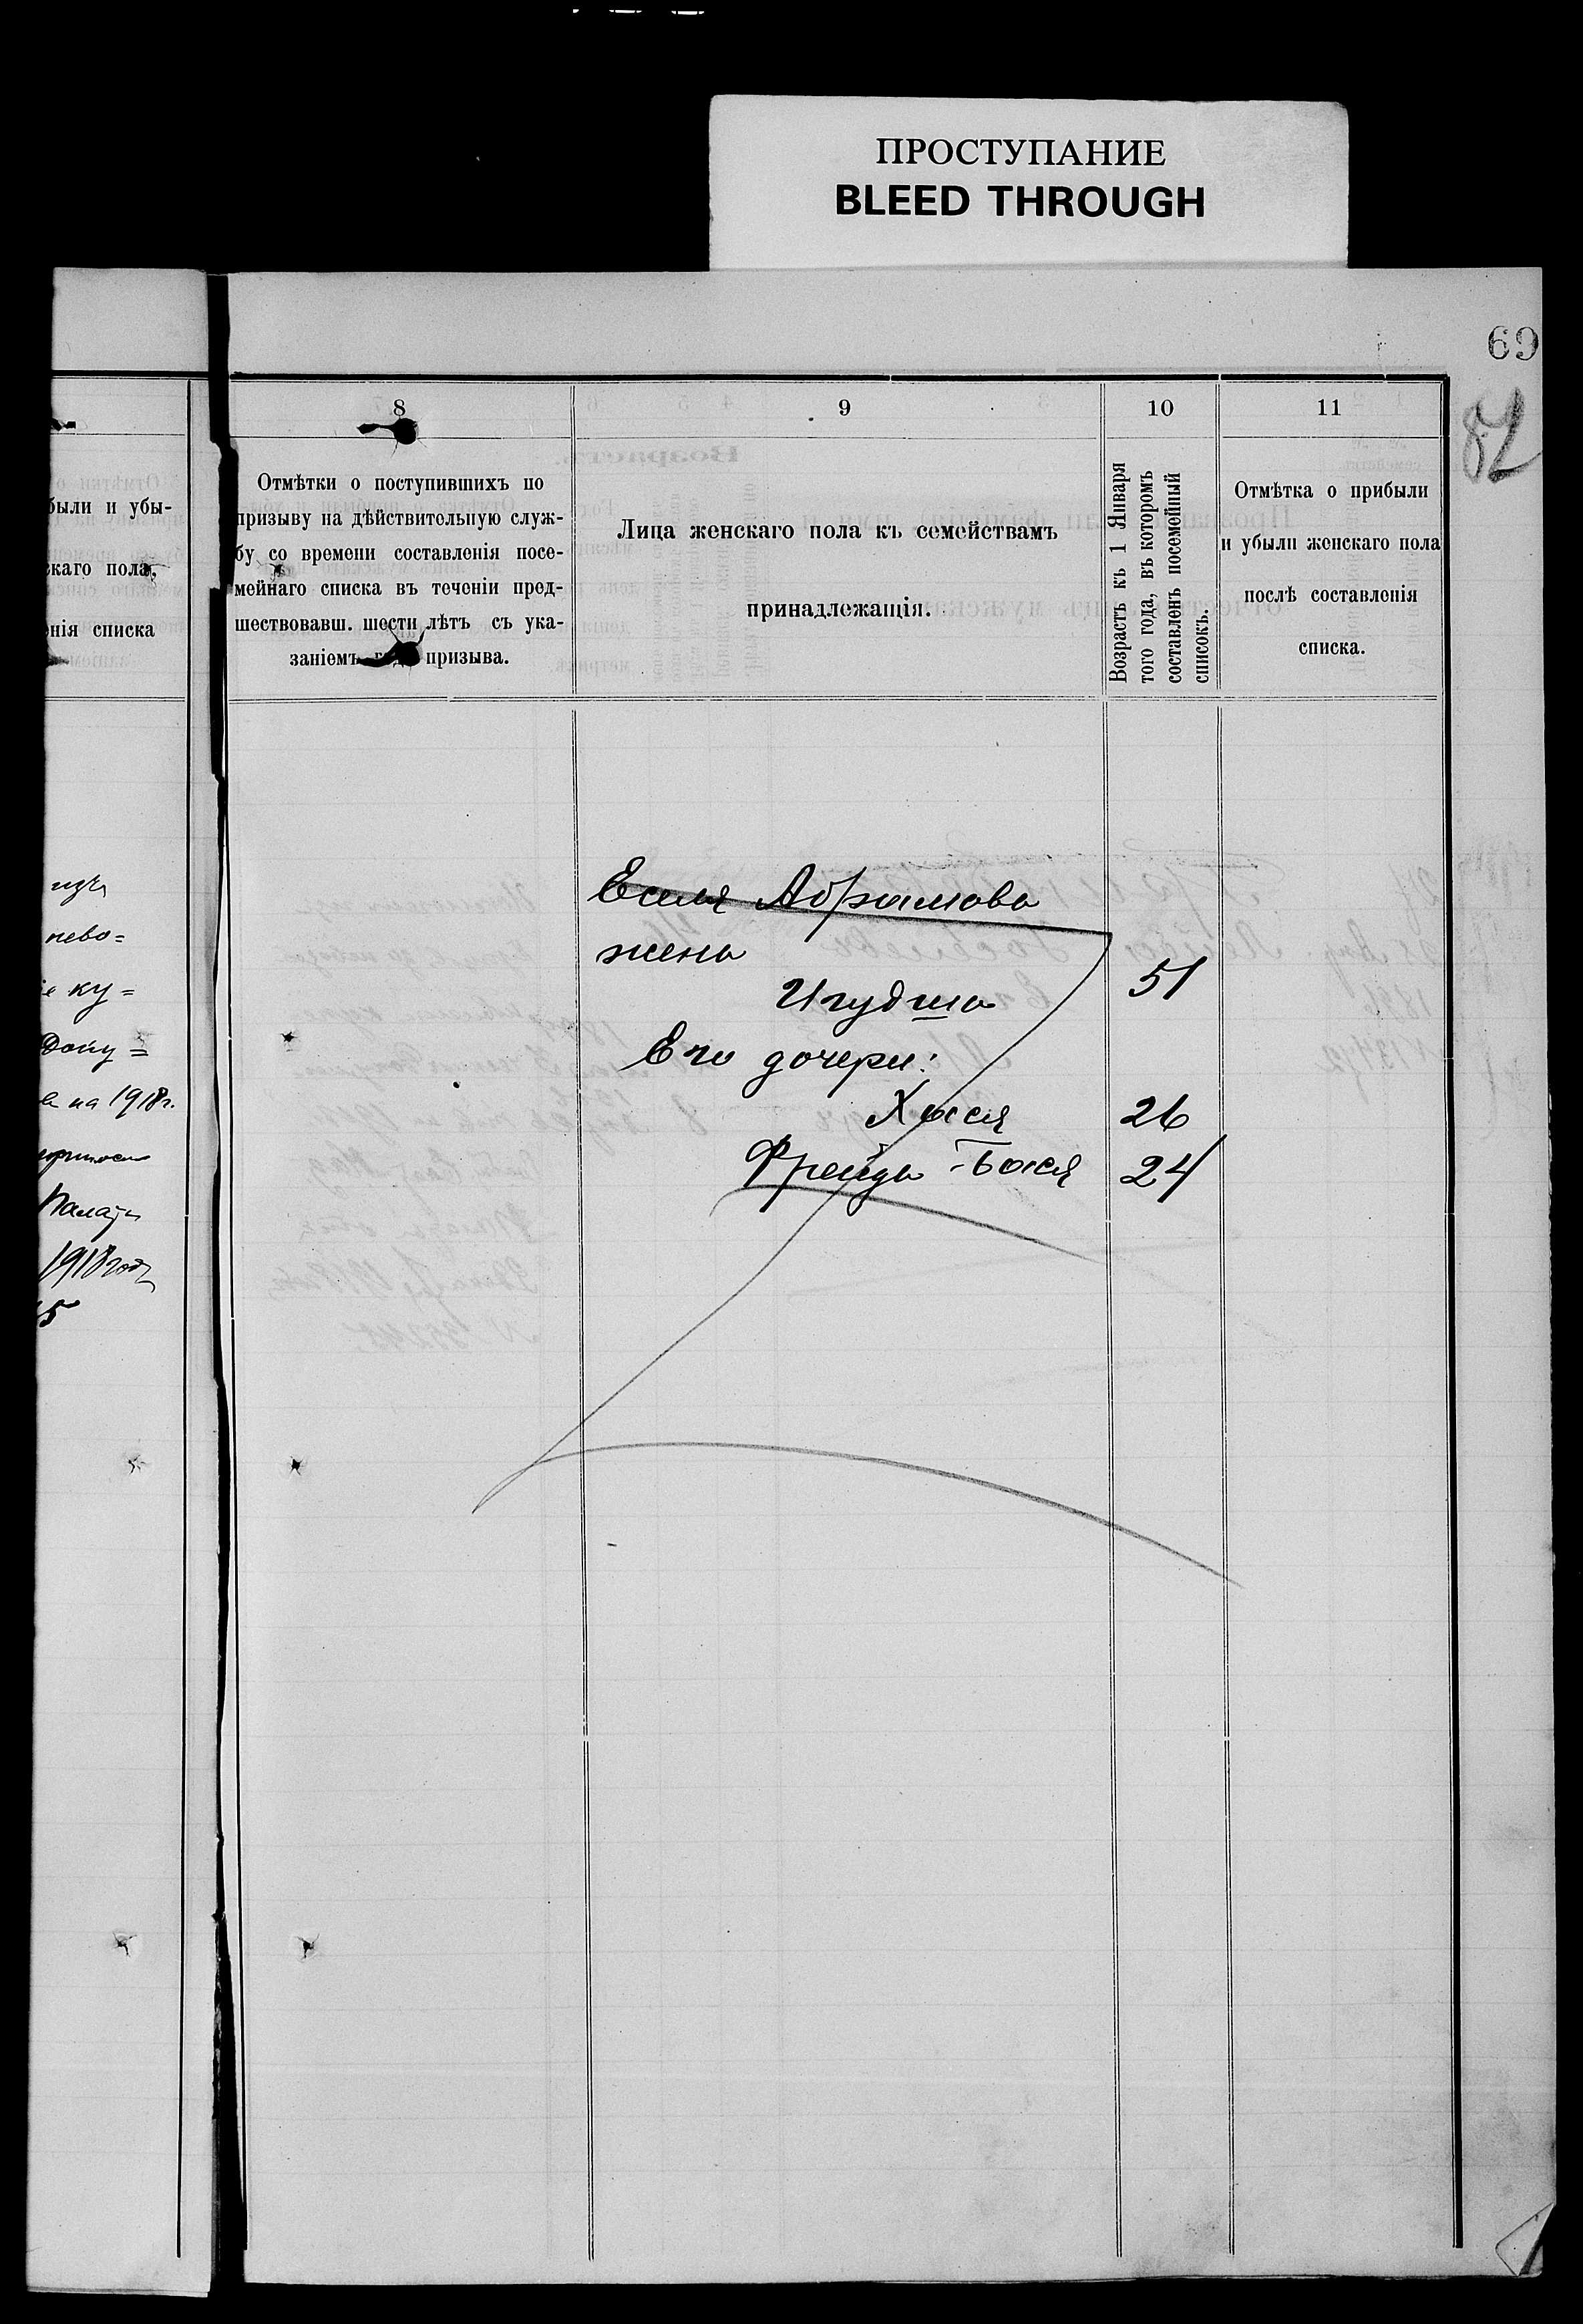 ПРОСТУПАНИЕ
BLEED THROUGH
69
82
были и убы-
скаго пола,
нія списка
изъ
нево=
е ку=
Допу=
на 1918 г.
Палаты
1918 года
5
8
Отмѣтки о поступившихъ по
призыву на дѣйствительную служ-
бу со времени составленія посе-
мейнаго списка въ теченіи пред-
шествовавш. шести лѣтъ съ ука-
заніемъ года призыва.
9
Лица женскаго пола къ семействамъ
принадлежащія.
10
Возрастъ къ 1 Января
того года, въ которомъ
составленъ посемейный
списокъ.
11
Отмѣтка о прибыли
и убыли женскаго пола
послѣ составленія
списка.
Еселя Абрамова
жена
Игудша 51
Его дочери:
Хася 26
Фрейда-Бася 24